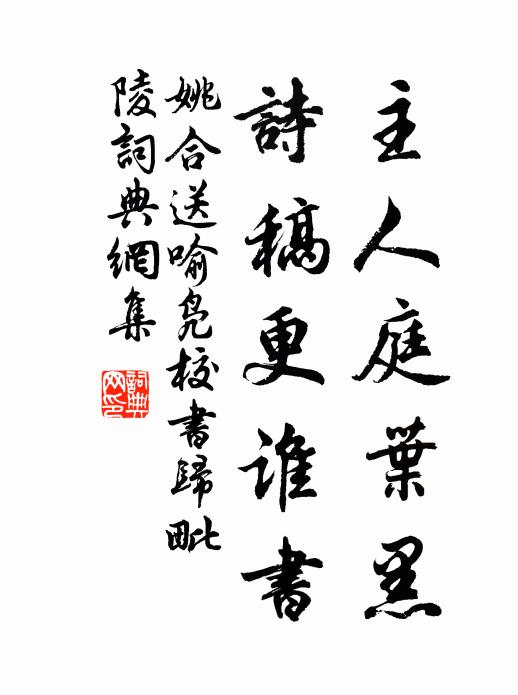 主人庭葉黑
詩稿更誰書
姚合送喻凫校書歸毗
陵詞典網集
詞典网印